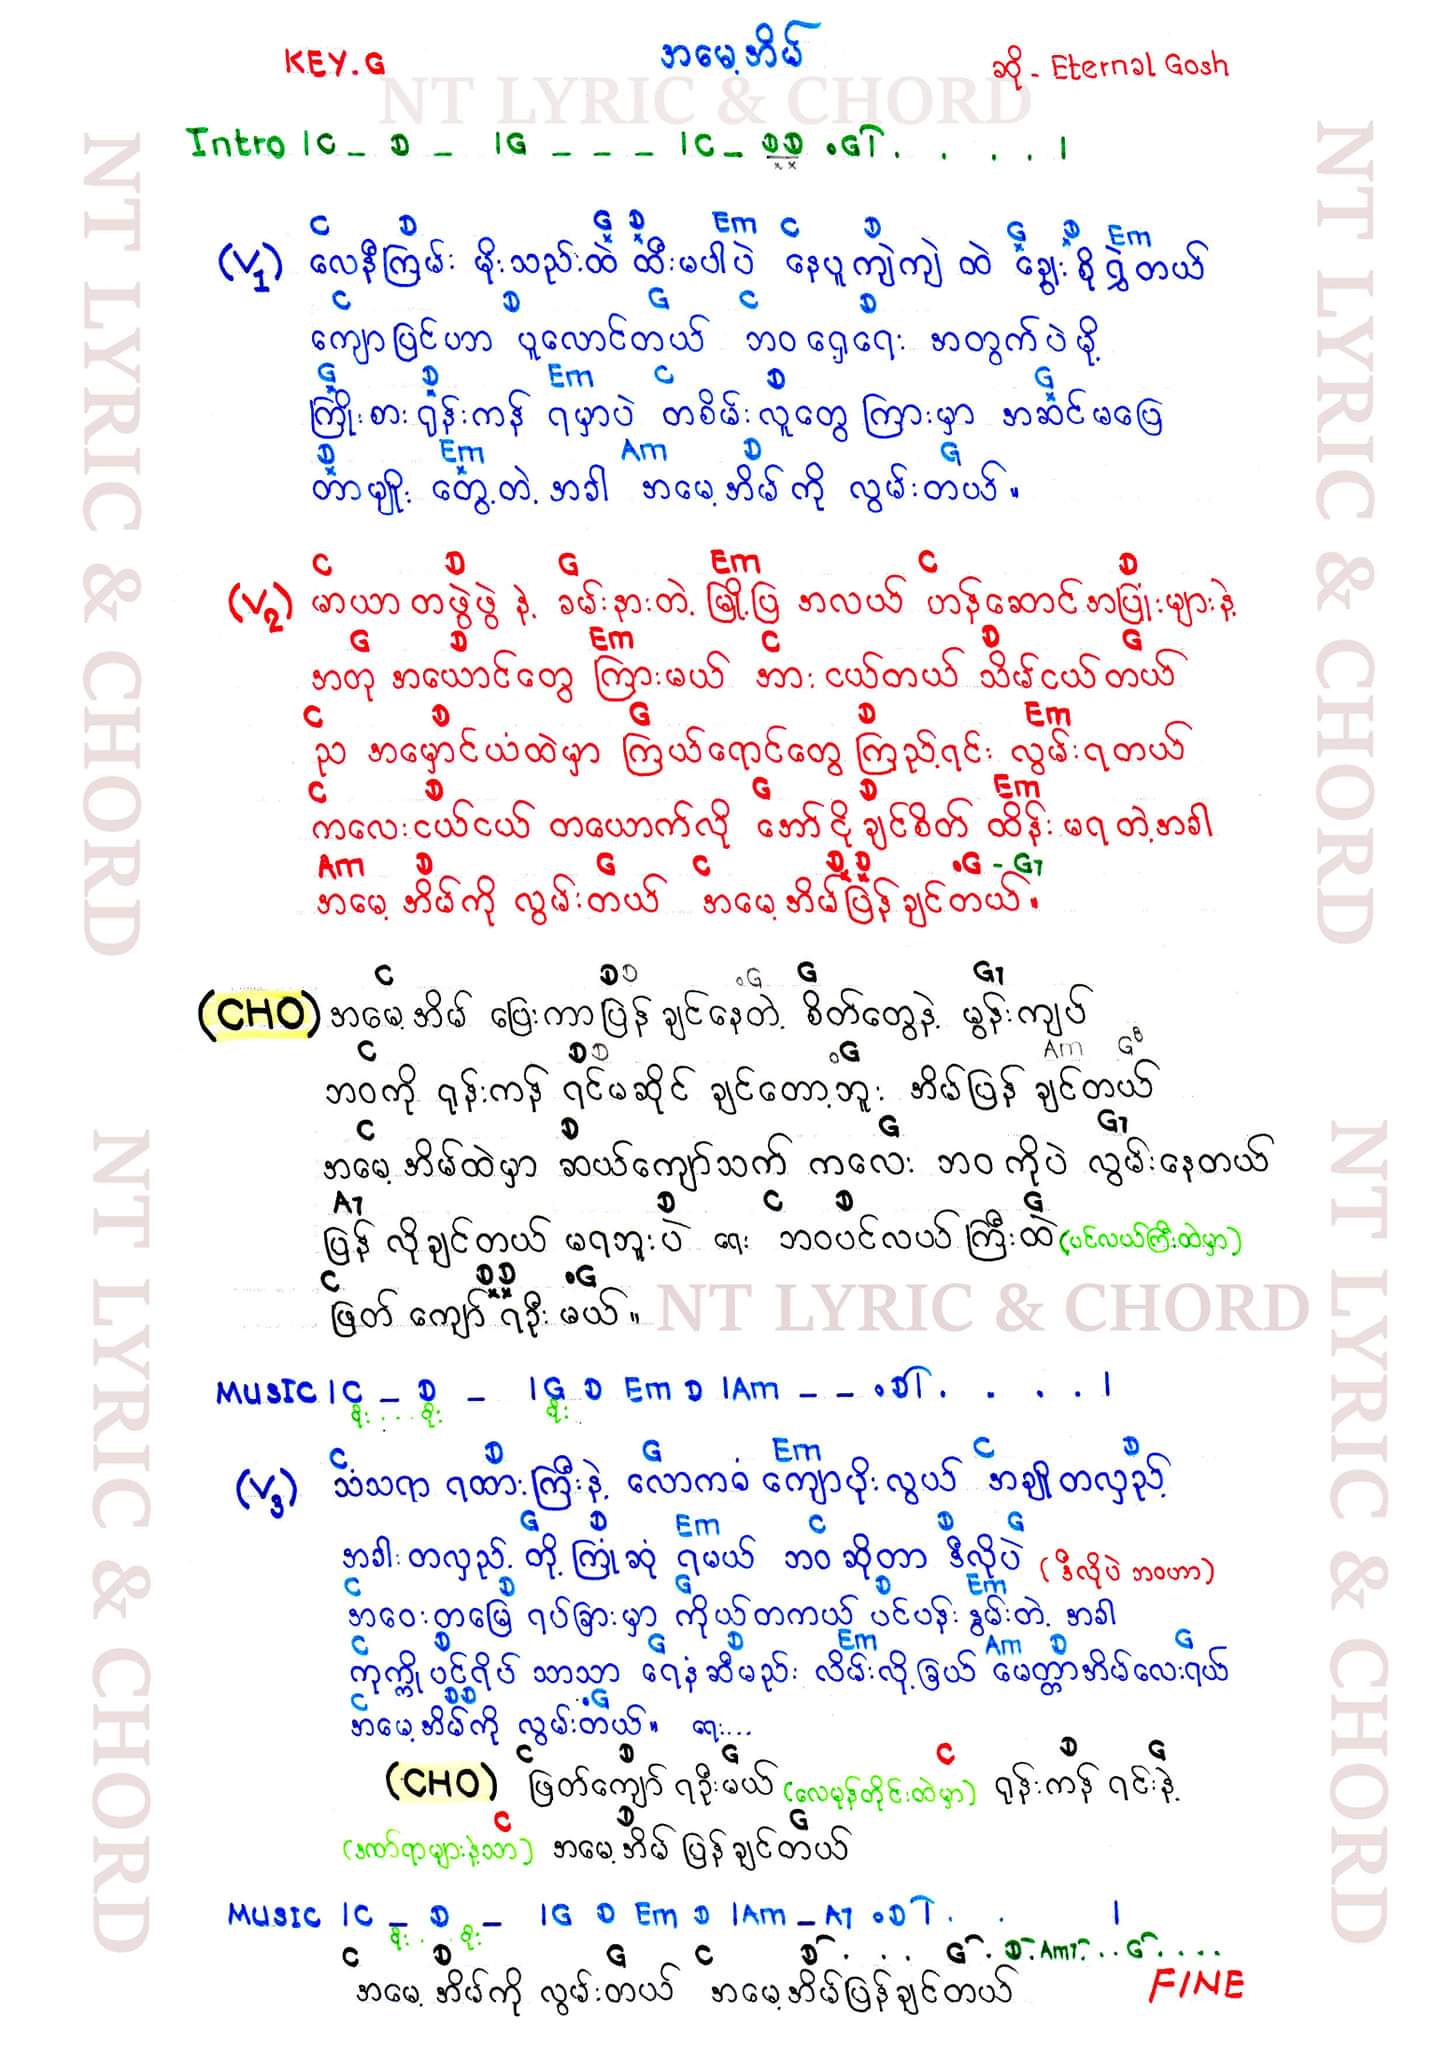 KEY.G အမေ့အိမ် ဆို - Eternal Gosh
NT LYRIC & CHORD
Intro | C _ D _ | G _ _ _ | C _ D D .G7 . . . . |
C D G D Em C D G D Em
(V1) လေနီကြမ်း မိုးသည်းထဲ ထီးမပါပဲ နေပူကျဲကျဲ ထဲ ချွေးစို့ရွှဲတယ်
C D G C D
ကျောပြင်ဟာ ပူလောင်တယ် ဘဝရှေ့ရေး အတွက်ပဲမို့
G D Em C D G
ကြိုးစားရုန်းကန် ရမှာပဲ တစိမ်းလူတွေ ကြားမှာ အဆင်မပြေ
D Em Am D G
တာမျိုး တွေ့တဲ့အခါ အမေ့အိမ်ကို လွမ်းတယ်။
C D G Em C D
(V2) မာယာတဖွဲဖွဲ နဲ့ ခမ်းနားတဲ့ မြို့ပြ အလယ် ဟန်ဆောင်အပြုံးများနဲ့
G D Em C D G
အတု အယောင်တွေ ကြားမယ် အားငယ်တယ် သိမ်ငယ်တယ်
C D G D Em
ည အမှောင်ယံထဲမှာ ကြယ်ရောင်တွေ ကြည့်ရင်း လွမ်းရတယ်
C D G D Em
ကလေးငယ်ငယ် တယောက်လို အော်ငိုချင်စိတ် ထိန်းမရတဲ့အခါ
Am D G C D D .G - G7
အမေ့အိမ်ကို လွမ်းတယ် အမေ့အိမ်ပြန်ချင်တယ်။
C D D .G G G7
(CHO) အမေ့အိမ် ပြေးကာပြန်ချင်နေတဲ့ စိတ်တွေနဲ့ မွန်းကျပ်
C D D .G Am G
ဘဝကို ရုန်းကန် ရင်မဆိုင် ချင်တော့ဘူး အိမ်ပြန် ချင်တယ်
C D G G7
အမေ့အိမ်ထဲမှာ ဆယ်ကျော်သက် ကလေး ဘဝကိုပဲ လွမ်းနေတယ်
A7 D C D G
ပြန်လို့ချင်တယ် မရဘူးပဲ ရေး ဘဝပင်လယ်ကြီးထဲ (ပင်လယ်ကြီးထဲမှာ)
C D D .G
ဖြတ်ကျော်ရဦးမယ်။ NT LYRIC & CHORD
MUSIC | C _ D _ | G D Em D | Am _ _ .D7 . . . . |
C D G Em C D
(V3) သံသရာ ရထားကြီးနဲ့ လောကဓံ ကျောပိုးလွယ် အချိုတလှည့်
G D Em C D G
အခါးတလှည့် တို့ကြုံဆုံ ရမယ် ဘဝဆိုတာ ဒီလိုပဲ (ဒီလိုပဲ ဘဝဟာ)
C D G D Em
အဝေးတမြေ ရပ်ခြားမှာ ကိုယ်တကယ် ပင်ပန်းနွမ်းတဲ့ အခါ
C D G D Em Am D G
ကုက္ကိုပင်ရိပ် သာသာ ရေနံဆီမည်း လိမ်းလို့ခြယ် မေတ္တာအိမ်လေးရယ်
C D D .G
အမေ့အိမ်ကို လွမ်းတယ်။ ရေး...
C D G C D G
(CHO) ဖြတ်ကျော်ရဦးမယ် (လေမုန်တိုင်းထဲမှာ) ရုန်းကန်ရင်းနဲ့
C D G
(ဒဏ်ရာများနဲ့သာ) အမေ့အိမ်ပြန်ချင်တယ်
MUSIC | C _ D _ | G D Em D | Am _ A7 .D7 . . |
C D G C D . . . G . D . Am7 . . G . . . .
အမေ့အိမ်ကို လွမ်းတယ် အမေ့အိမ်ပြန်ချင်တယ် FINE
NT LYRIC & CHORD
NT LYRIC & CHORD
NT LYRIC & CHORD
NT LYRIC & CHORD